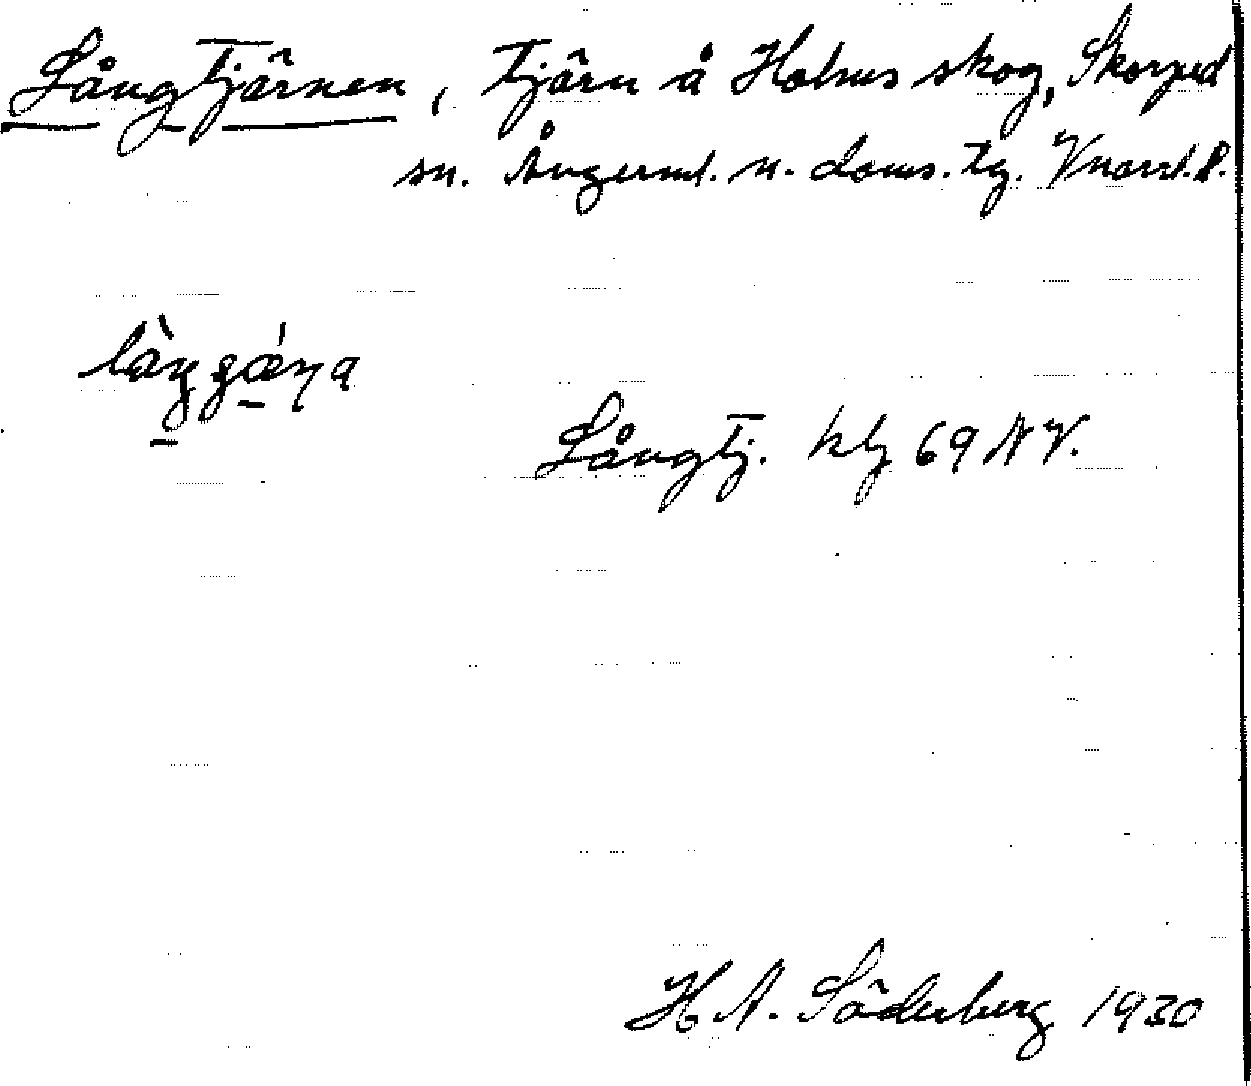 Långtjärnen, tjärn å Holms skog, Skorped
sn. Ångerml. n. doms. tg. Vnorrl. l.
Långtj. kbl 69 NV.
H A. Söderberg 1930